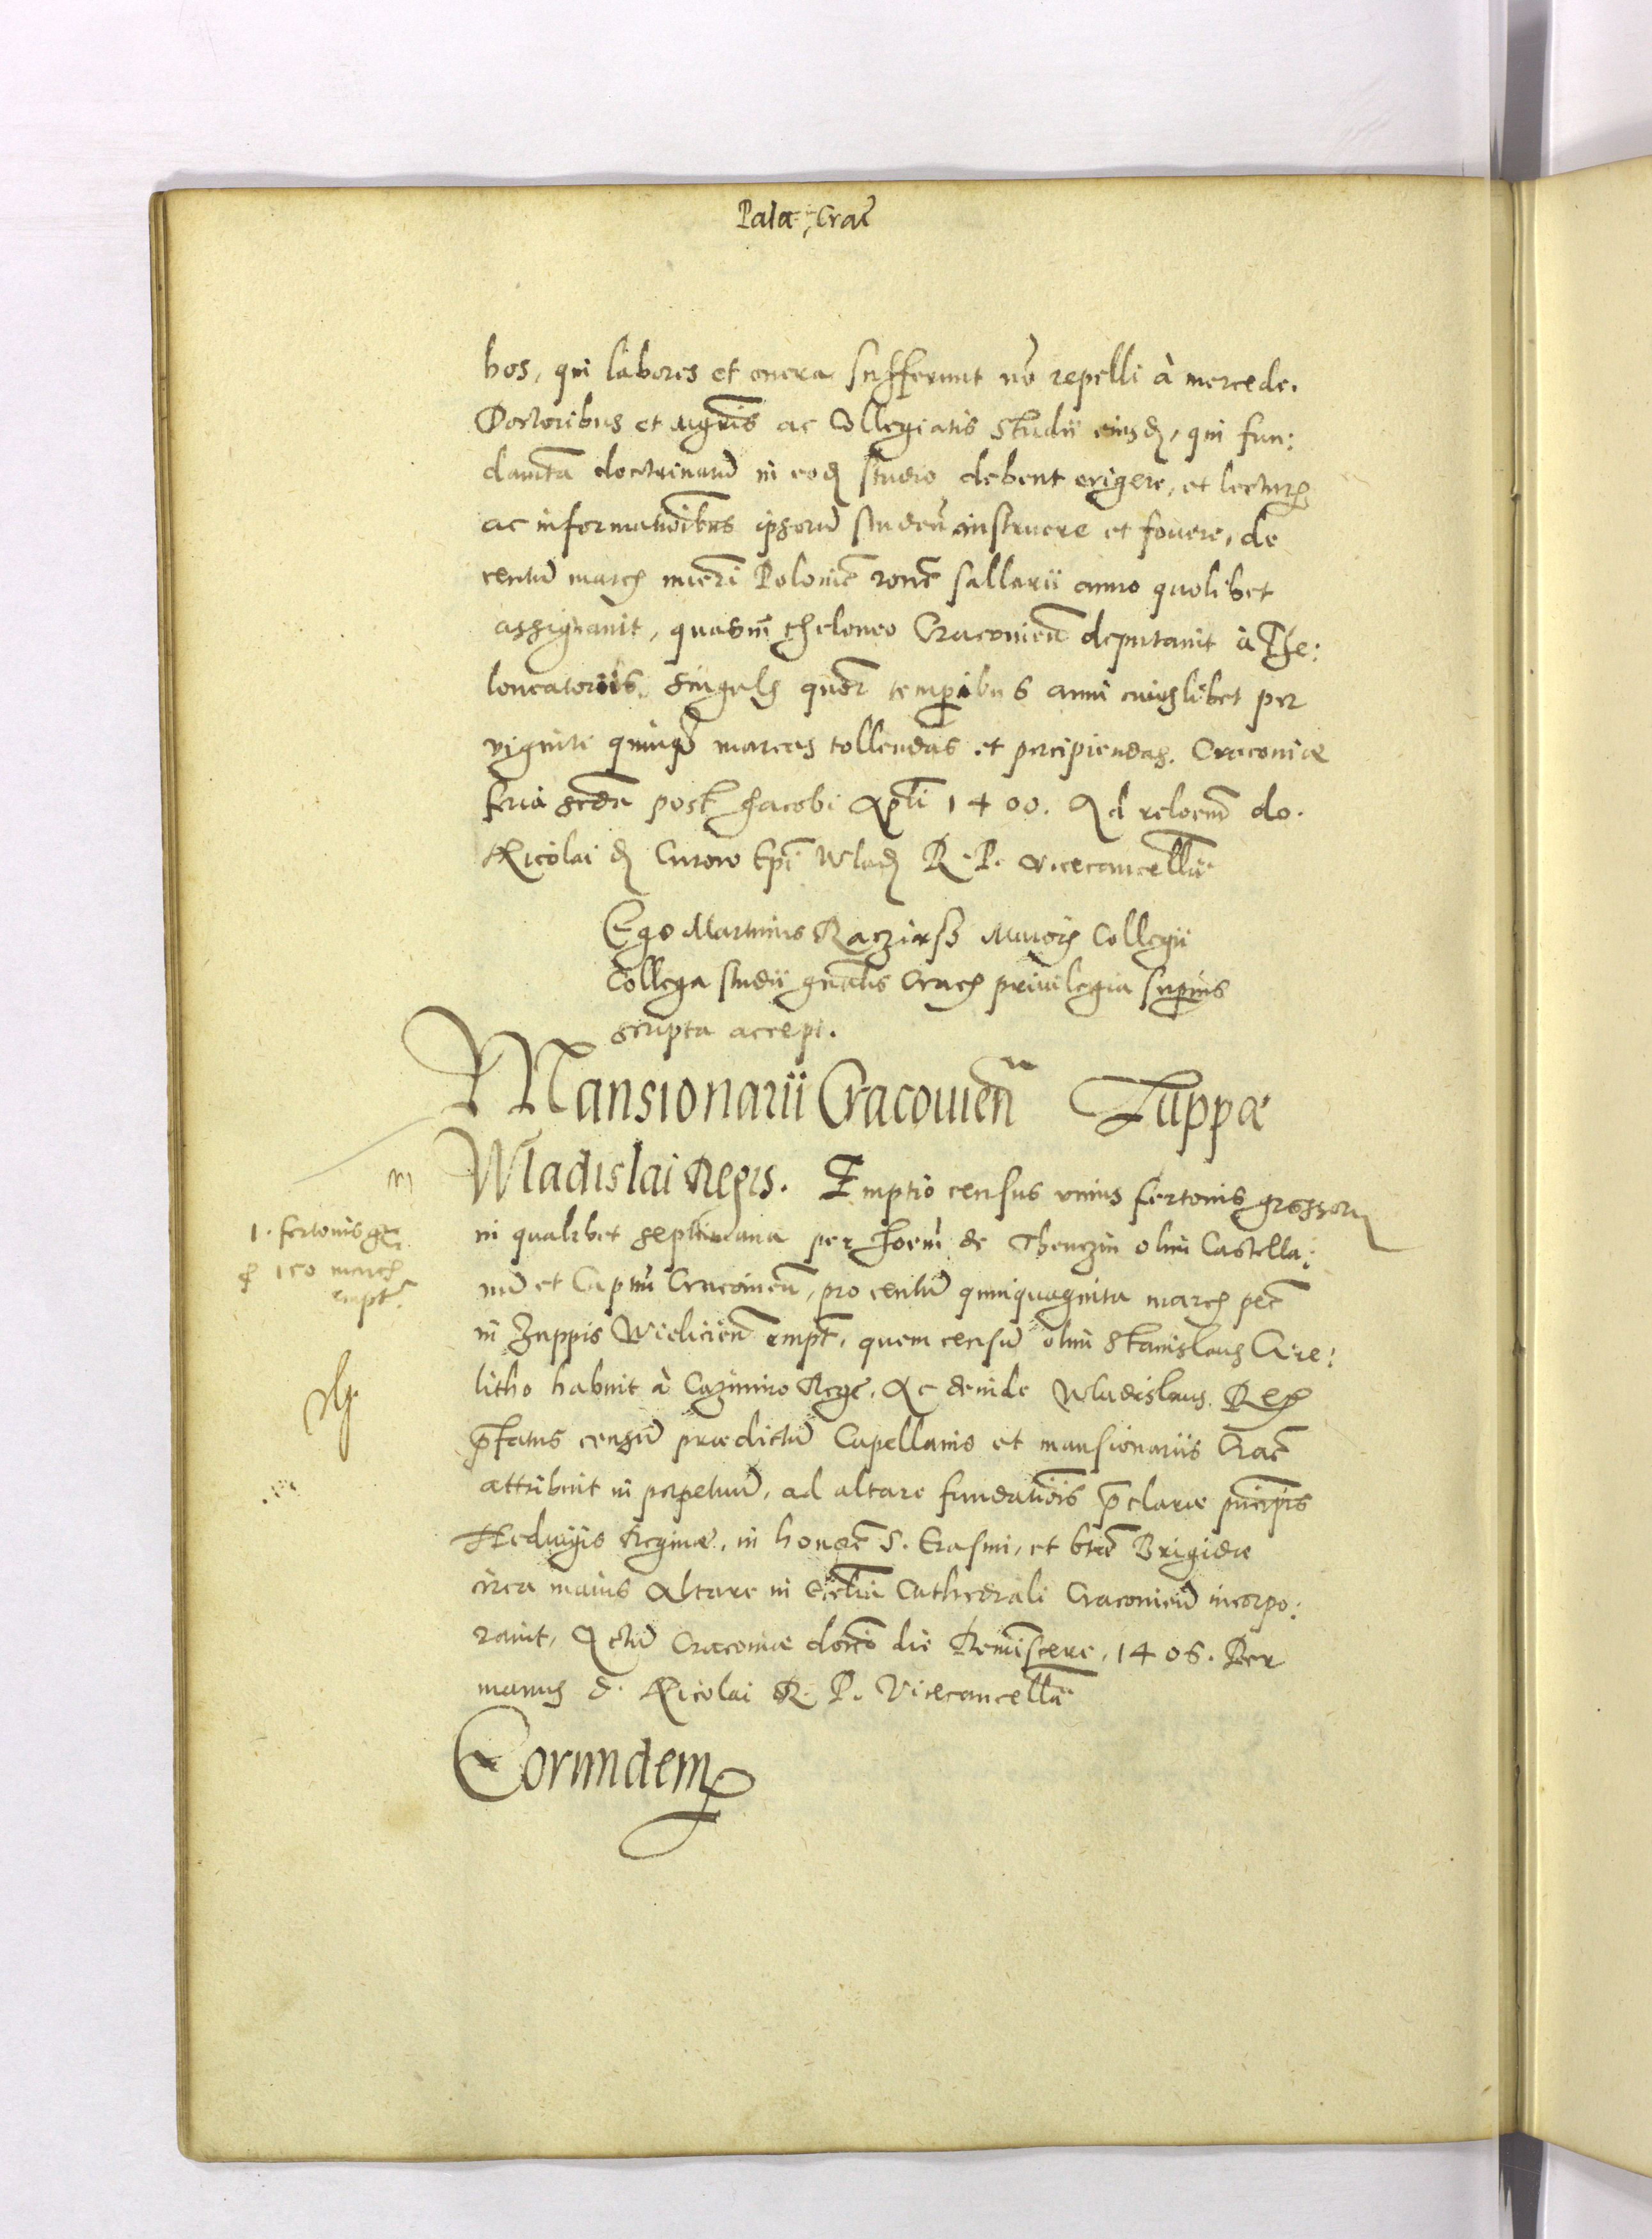 Pala: Crac̄
hos, qui labores et onera sufferunt nō repelli à mercede.
Doctoribus et mgr̄is ac Collegiatis Studii eiusd, qui fun:
damt̄a doctrinarū in eod studio debent erigere, et lecturis
ac informatiōibus ipsorū studen̄ instruere et fouere, de
centū march nūeri Polonic̄ rone sallarii anno quolibet
assignauit, quas in theloneo Cracouien̄ deputauit à The:
loneatoribus singulis quor̄ temporibus anni cuiuslibet per
viginti quinqȝ marcas tollendas et percipiendas. Cracouiæ
feria scd̄a post Jacobi Apl̄i 1400. Ad reloem̄ do.
Nicolai d Curow Ep̄i Wlad R. P. vicecancellā
Ego Martinus Racziasz Maioris Collegii
Collega studii gn̄alis Crac privilegia superius
scripta accepi.
Mansionarii Cracouien̄ Zuppæ
Wladislai Regis. Emptio census vnius fertonis grossor
in qualibet septimana per Joem̄ de Thenczin olim Castella:
nū et Capn̄u Cracouien̄, pro centū quinquaginta march pec̄
in Zuppis Wielicien̄ empt̄, quem censū olim Stanislaus Cre:
litho habuit à Cazimiro Rege. Ac deinde Wladislaus Rex
p̄fatus censū prædictū Capellanis et mansionariis Crac̄
attribuit in perpetuū, ad altare fundatiōis p̄claræ principis
Hedwigis Reginæ, in honore S. Erasmi, et btæ Brigidæ
circa maius Altare in Eccl̄ia Cathedrali Cracouien̄ incorpo:
rauit, Actū Cracouiæ donico die Reminiscere, 1406. Per
manus d. Nicolai R. P. Vicecancellā
Eorundem
1. fertonis gr
p 150 march
empt.